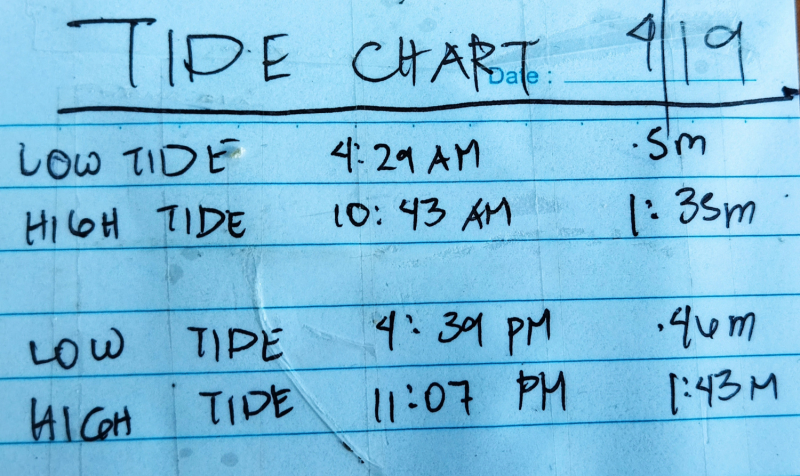 TIDE CHART 4/19
Date :
LOW TIDE 4:29 AM .5m
HIGH TIDE 10:43 AM 1:35m
LOW TIDE 4:39 PM .46m
HIGH TIDE 11:07 PM 1:43M